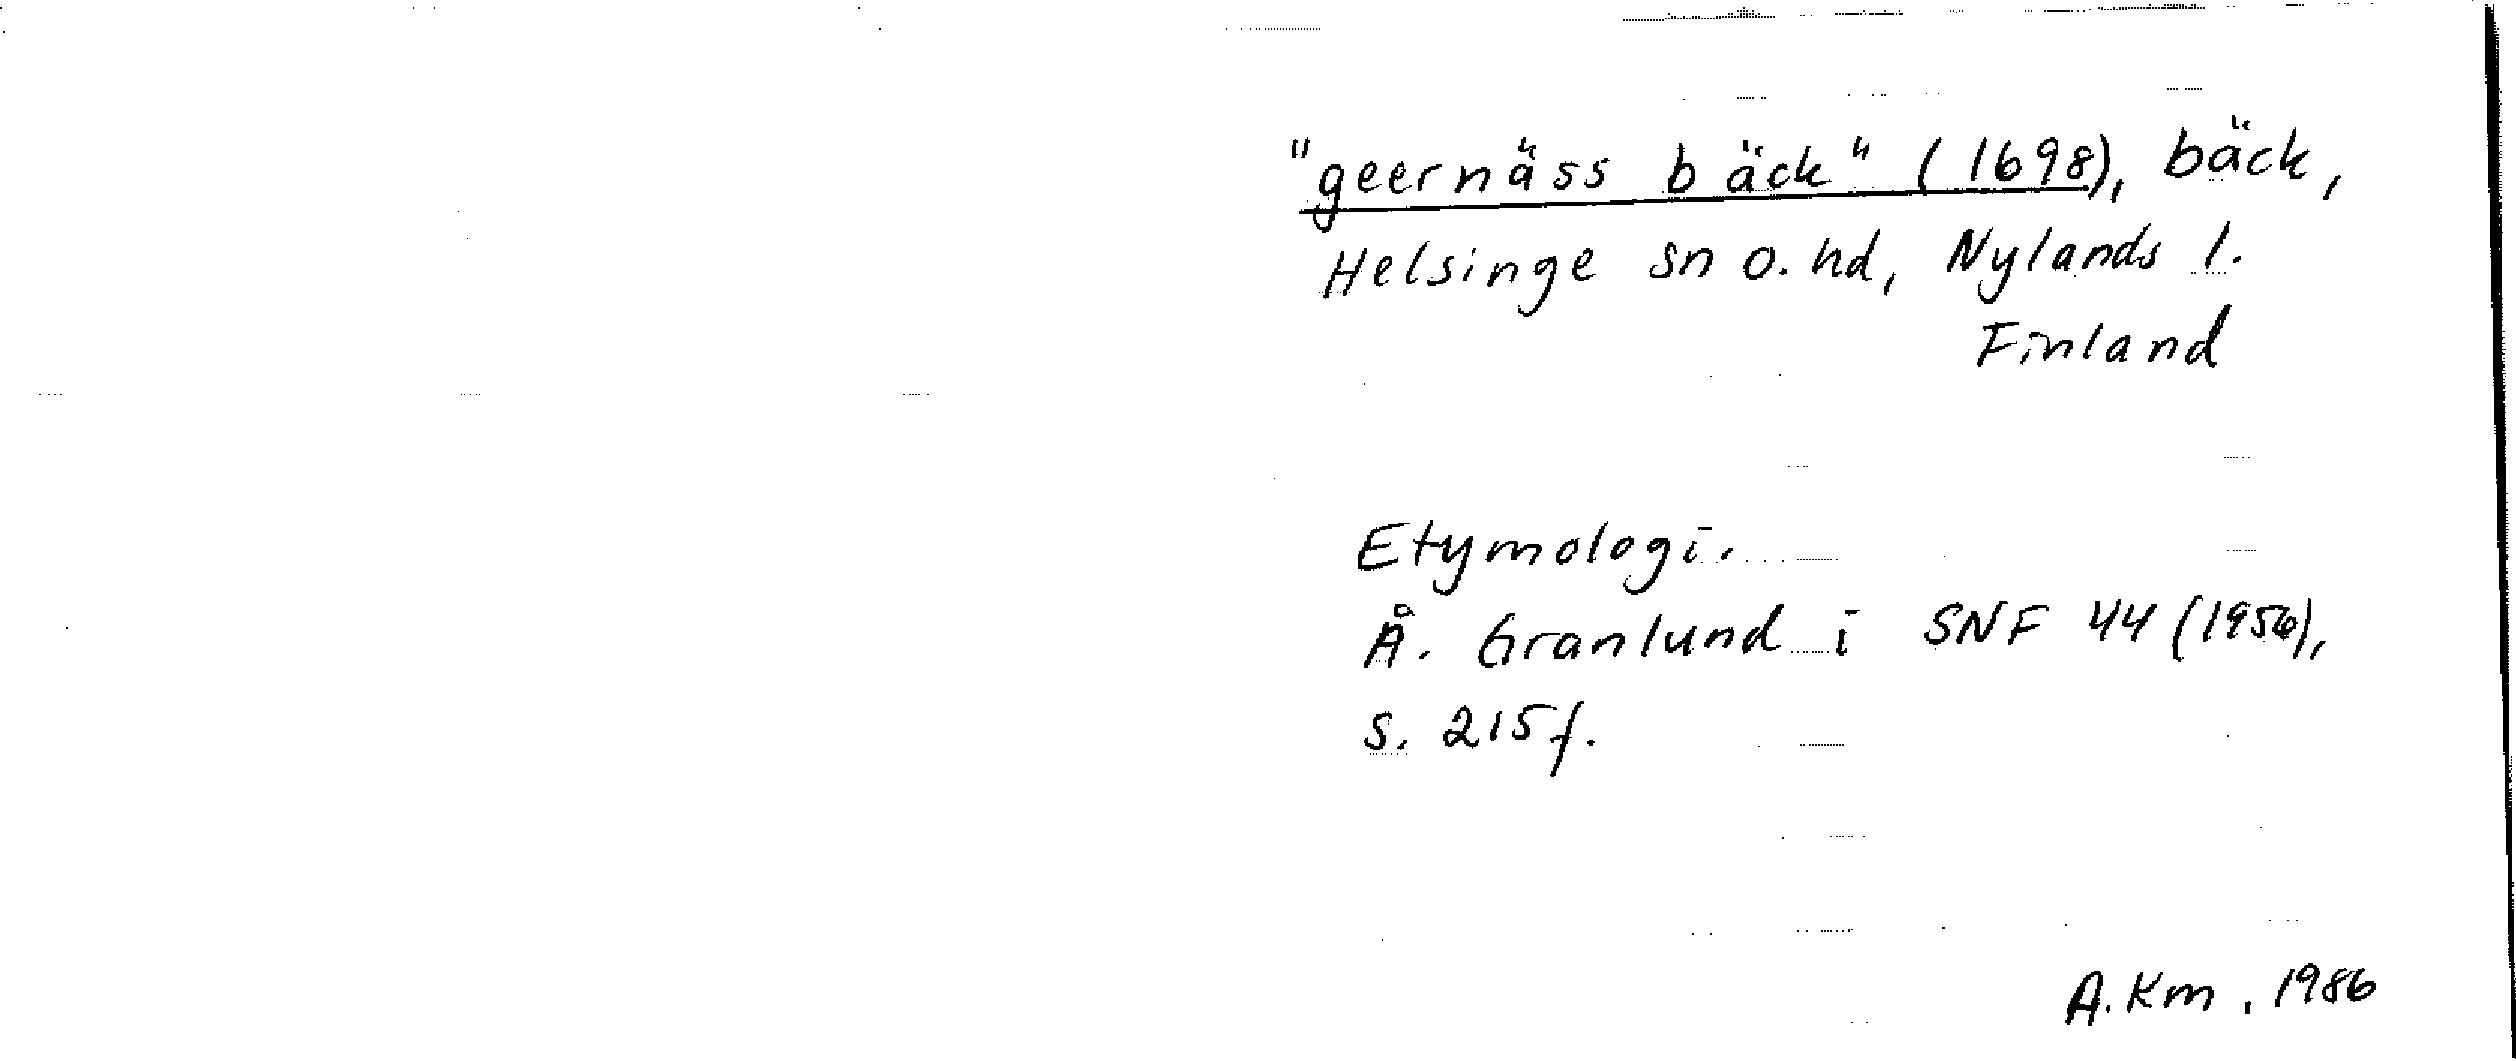 "geernäss bäck" (1698), bäck,
Helsinge sn o. hd, Nylands l.
Finland
Etymologi.
Å. Granlund i SNF 44 (1956),
s. 215 f.
A. Km, 1986